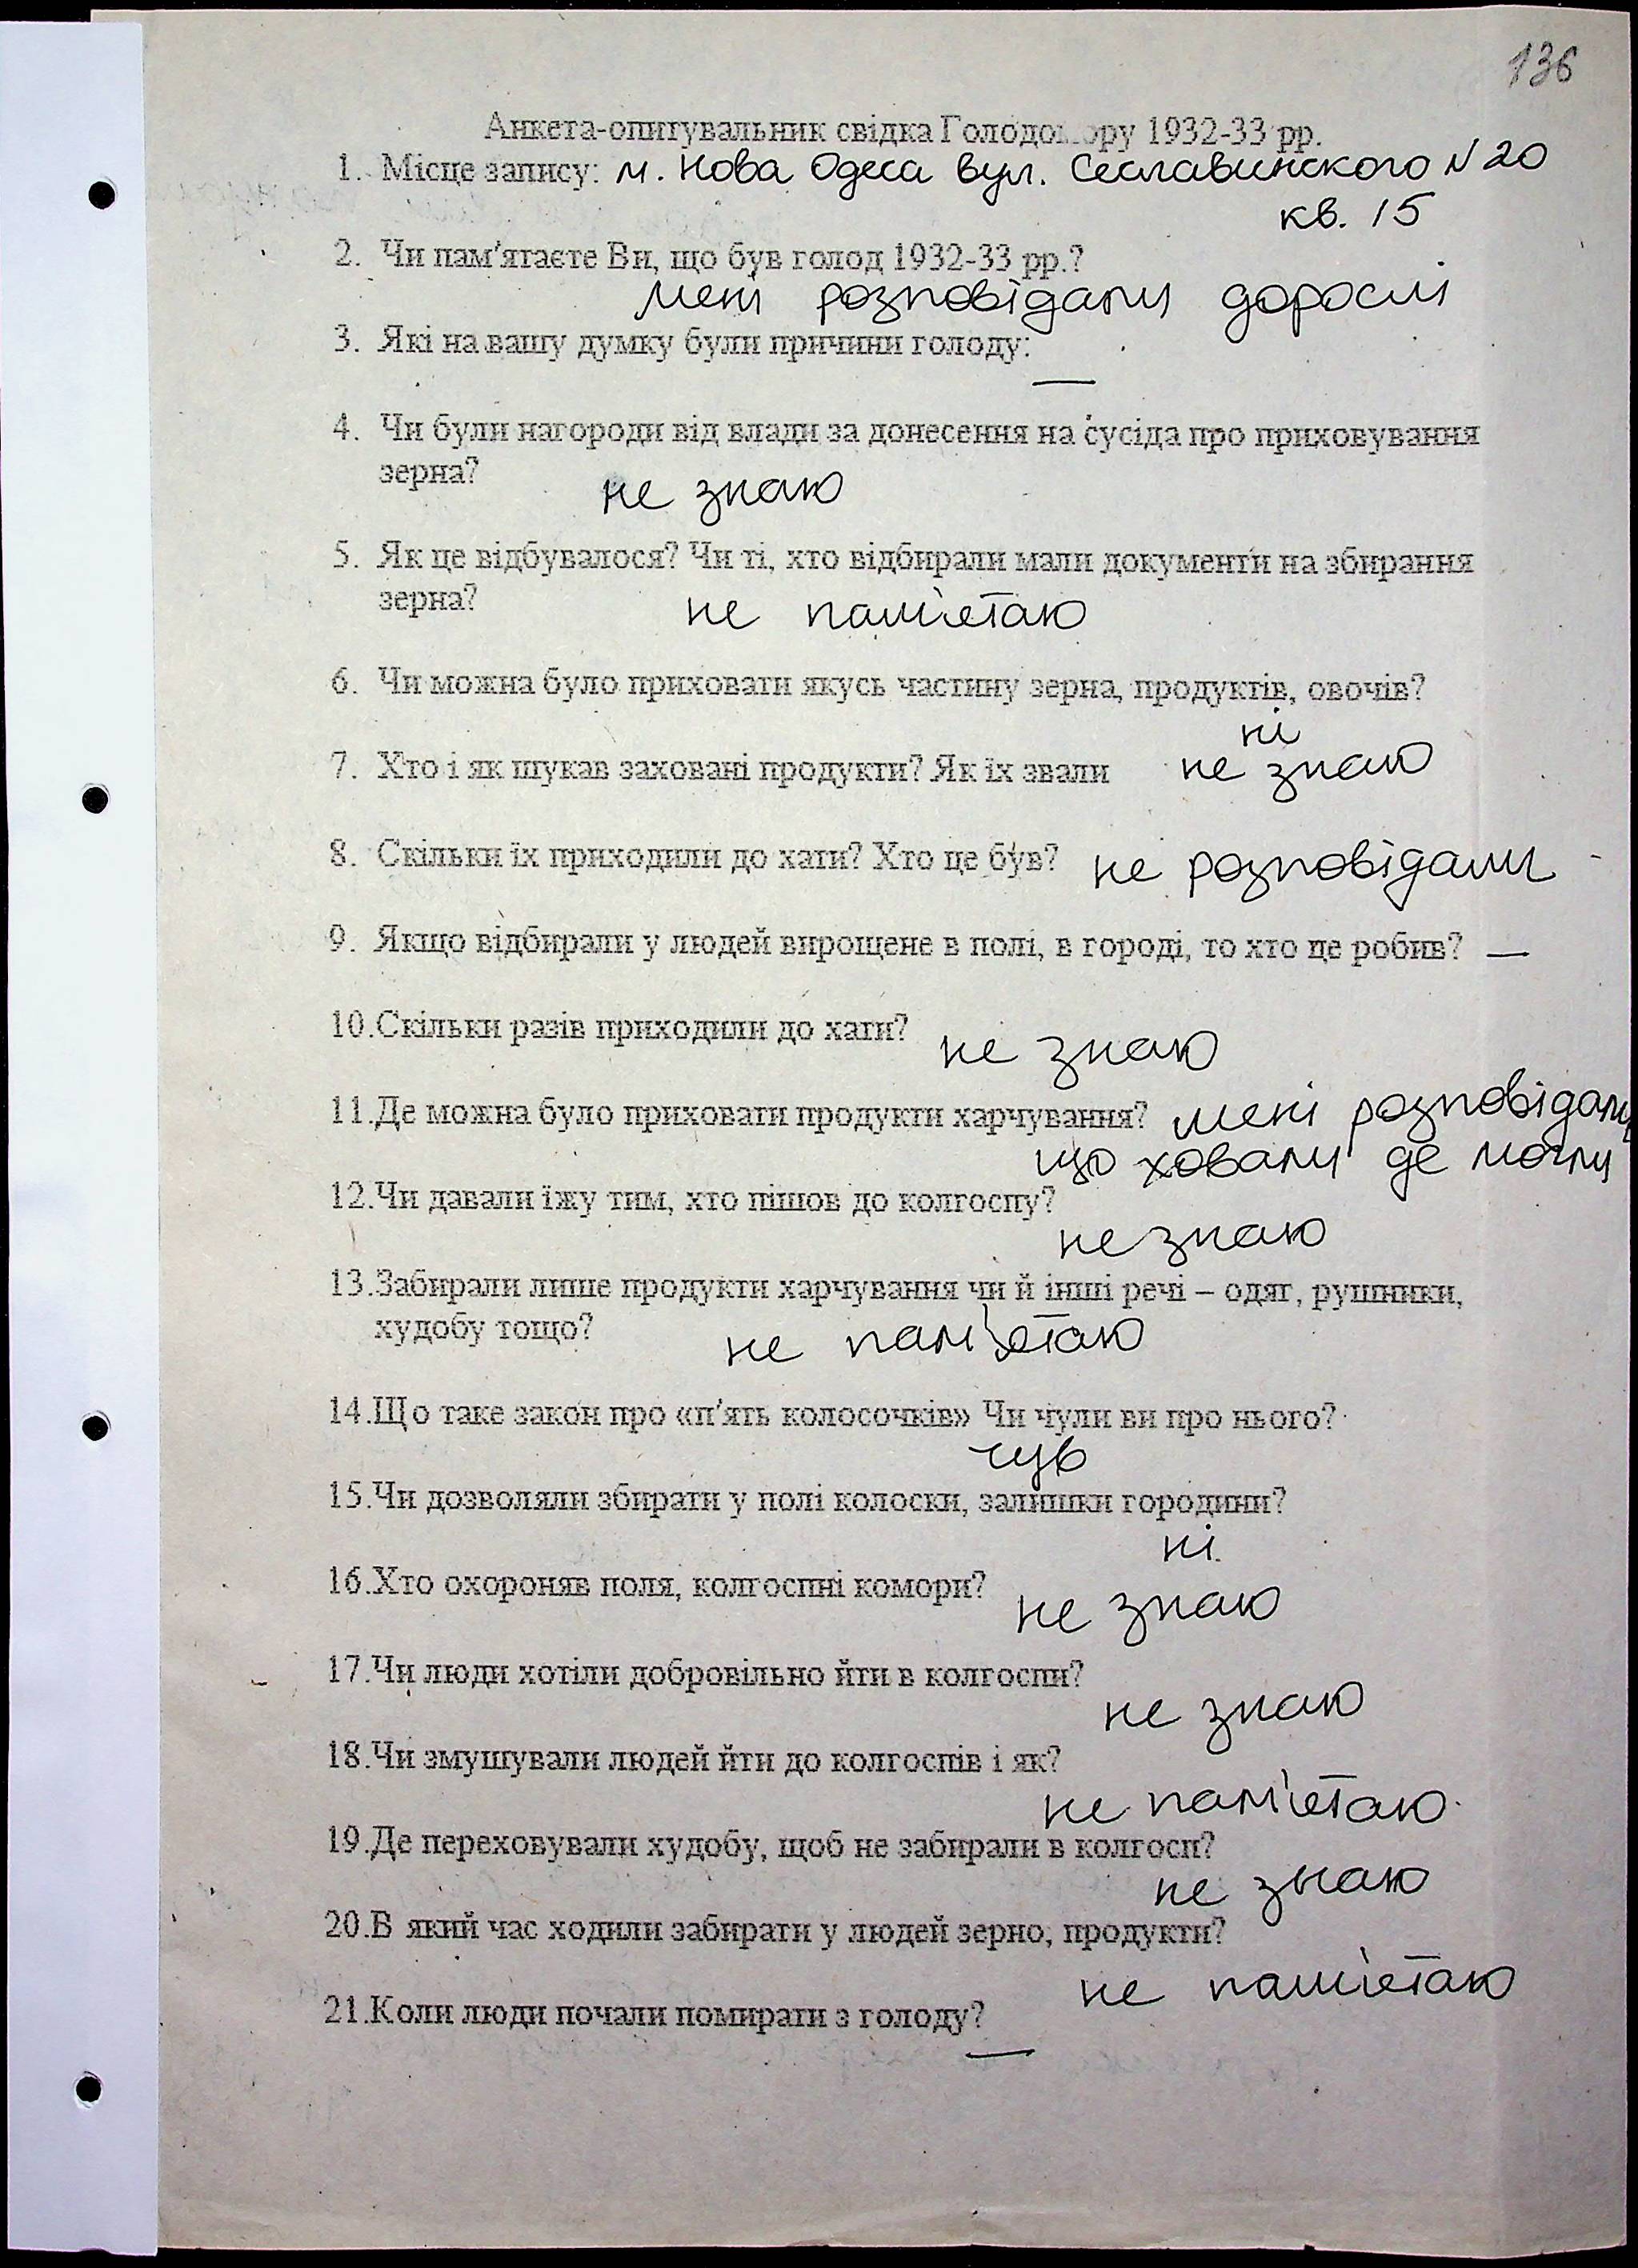 136
Анкета-опитувальник свідка Голодомору 1932-33 рр.
1. Місце запису: м. Нова Одеса вул. Сеславинского N 20
кв. 15
2. Чи пам'ятаєте Ви, що був голод 1932-33 рр.?
мені розповідали дорослі
3. Які на вашу думку були причини голоду:
—
4. Чи були нагороди від влади за донесення на сусіда про приховування
зерна?
не знаю
5. Як це відбувалося? Чи ті, хто відбирали мали документи на збирання
зерна?
не пам'ятаю
6. Чи можна було приховати якусь частину зерна, продуктів, овочів?
ні
7. Хто і як шукав заховані продукти? Як їх звали не знаю
8. Скільки їх приходили до хати? Хто це був? не розповідали
9. Якщо відбирали у людей вирощене в полі, в городі, то хто це робив? —
10.Скільки разів приходили до хати?
не знаю
11.Де можна було приховати продукти харчування? мені розповідали
що ховали де могли
12.Чи давали їжу тим, хто пішов до колгоспу?
не знаю
13.Забирали лише продукти харчування чи й інші речі – одяг, рушники,
худобу тощо?
не пам'ятаю
14.Що таке закон про «п'ять колосочків» Чи чули ви про нього?
чув
15.Чи дозволяли збирати у полі колоски, залишки городини?
ні.
16.Хто охороняв поля, колгоспні комори?
не знаю
17.Чи люди хотіли добровільно йти в колгоспи?
не знаю
18.Чи змушували людей йти до колгоспів і як?
не пам'ятаю
19.Де переховували худобу, щоб не забирали в колгосп?
не знаю
20.В який час ходили забирати у людей зерно, продукти?
не пам'ятаю
21.Коли люди почали помирати з голоду?
—